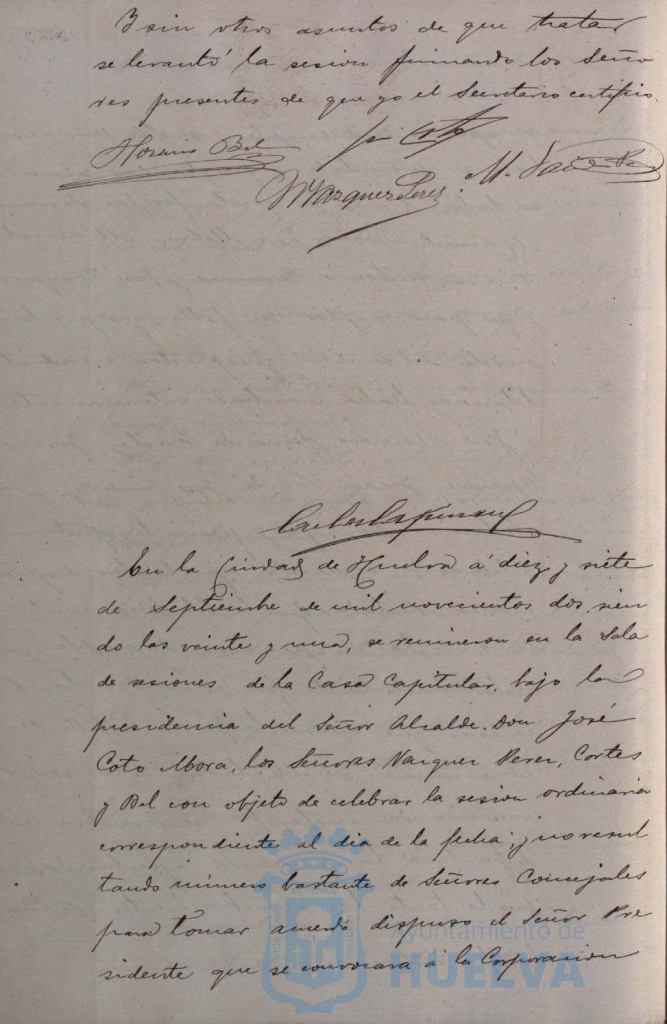 Y sin otros asuntos de que tratar
se levantó la sesion firmando los Seño
res presentes de que yo el Secretario certifico.
Horacio Bel
José Coto
M Vazquez Perez
M.
En la Ciudad de Huelva á diez y siete
de Septiembre de mil novecientos dos, sien
do las veinte y una, se reunieron en la Sala
de sesiones de la Casa Capitular, bajo la
presidencia del Señor Alcalde Don José
Coto Mora, los Señores Vazquez Perez, Cortes
y Bel con objeto de celebrar la sesion ordinaria
correspondiente al dia de la fecha; y no resul
tando número bastante de Señores Concejales
para tomar acuerdo dispuso el Señor Pre
sidente que se convocara á la Corporacion
Ayuntamiento de
HUELVA